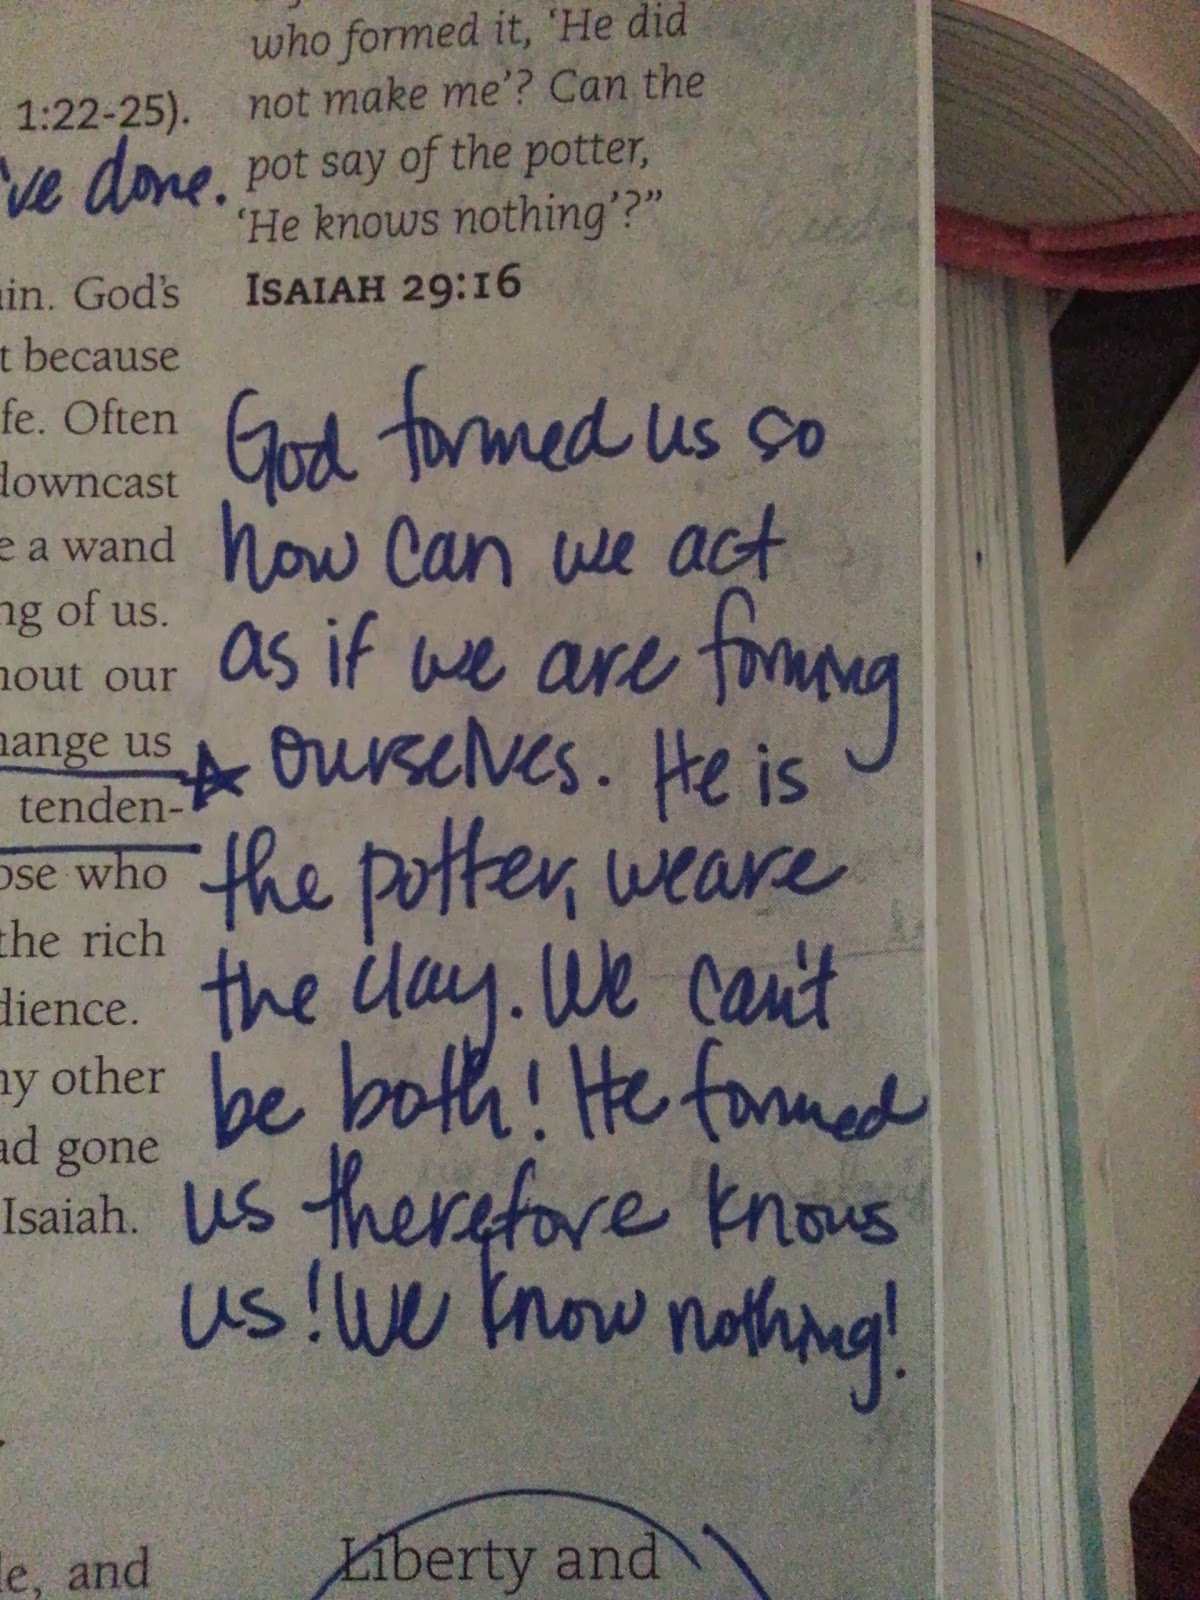 who formed it, 'He did
not make me'? Can the
pot say of the potter,
'He knows nothing'?"
ISAIAH 29:16
1:22-25).
've done.
in. God's
t because
fe. Often
downcast
e a wand
ng of us.
hout our
hange us
tenden-
ose who
the rich
dience.
ny other
ad gone
Isaiah.
God formed us so
how can we act
as if we are forming
ourselves. He is
the potter, we are
the clay. We can't
be both! He formed
us therefore knows
us! We know nothing!
le, and
Liberty and